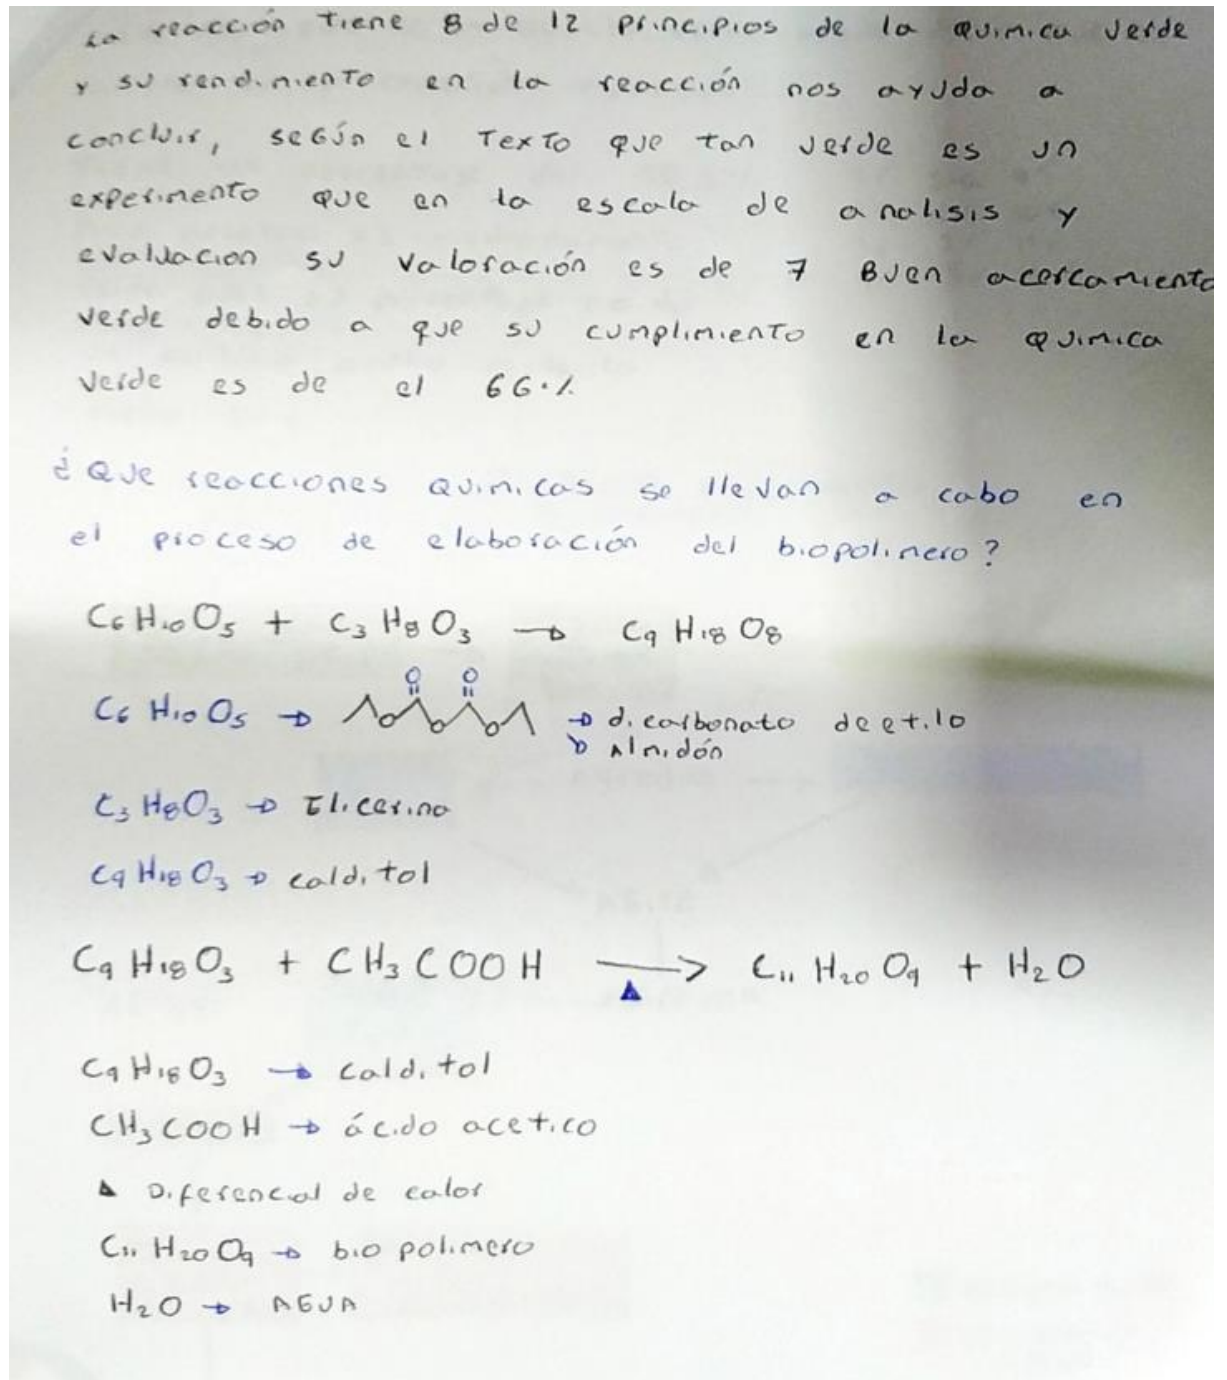 La reacción tiene 8 de 12 principios de la quimica verde
y su rendimiento en la reacción nos ayuda a
concluir, según el texto que tan verde es un
experimento que en la escala de analisis y
evaluacion su valoración es de 7 Buen acercamiento
verde debido a que su cumplimiento en la quimica
verde es de el 66%
¿Que reacciones quimicas se llevan a cabo en
el proceso de elaboración del biopolimero?
C6 H10 O5 + C3 H8 O3 → C9 H18 O8
C6 H10 O5 → O O O O O → dicarbonato de etilo
→ Almidón
C3 H8 O3 → Glicerina
C9 H18 O3 → calditol
C9 H18 O3 + CH3 COOH → Δ C11 H20 O9 + H2O
C9 H18 O3 → calditol
CH3 COOH → ácido acetico
Δ Diferencial de calor
C11 H20 O9 → bio polimero
H2O → AGUA